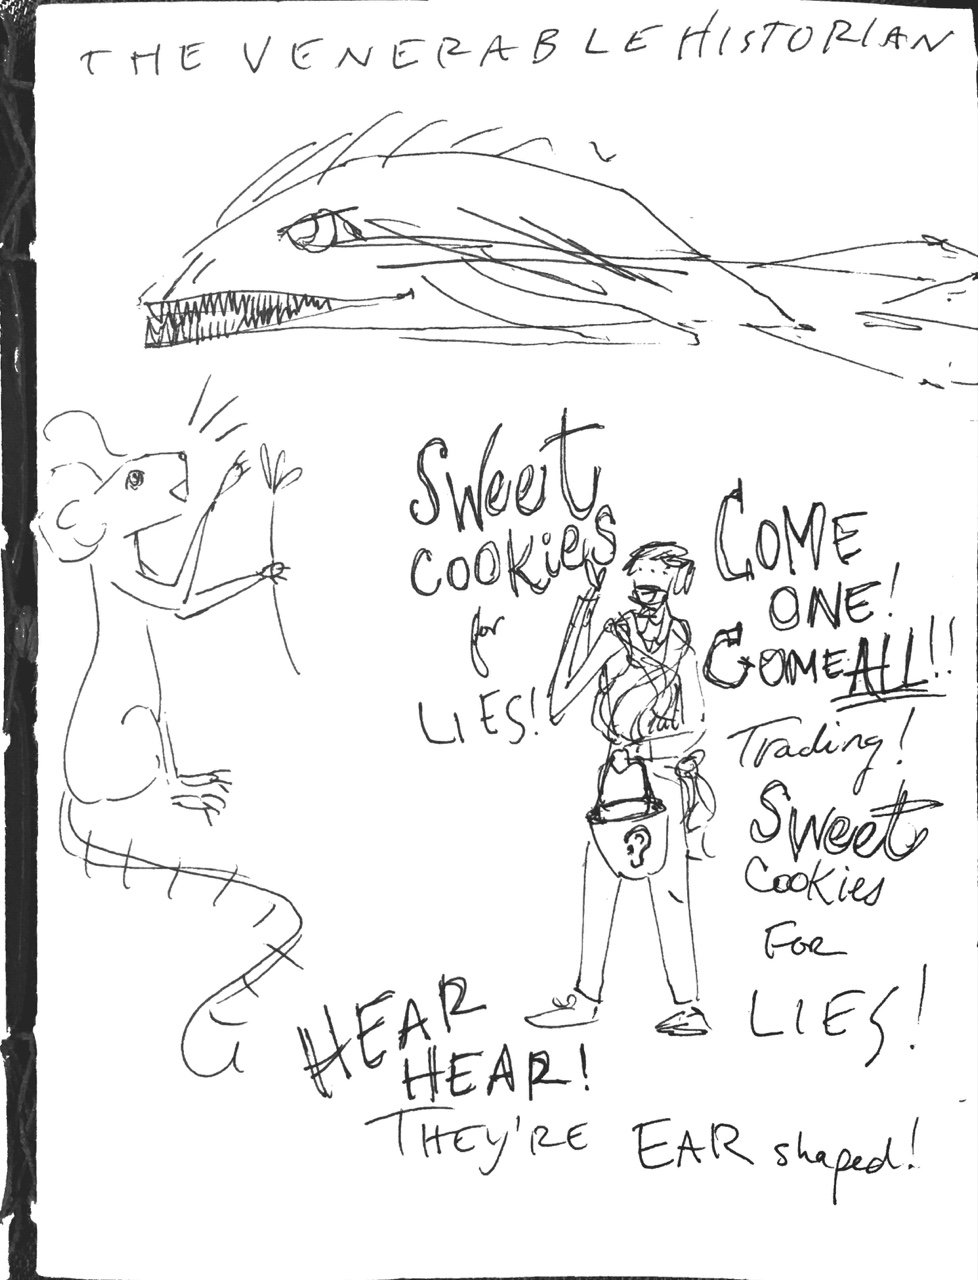 THE VENERABLE HISTORIAN
Sweet
COOKiES
for
LIES!
COME
ONE!
COME ALL!!
Trading!
Sweet
Cookies
FOR
LIES!
HEAR
HEAR!
THEY'RE EAR shaped!